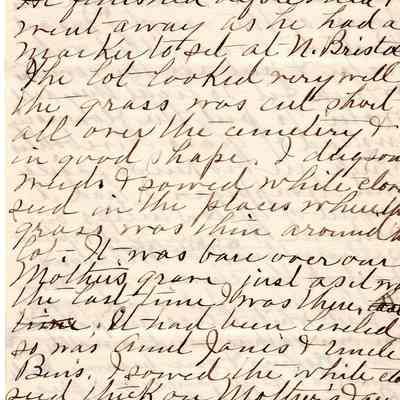 He finished before had I
went away as he had a
marker to set at N. Bristol
The lot looked very well
the grass was cut short
all over the cemetery &
in good shape. I dug som
weeds & sowed white clov
seed in the places where
grass was thin around
lot. It was bare over our
Mother's grave just as it w
the last time I was there,
time. It had been leveled
so was Aunt Janis & Uncle
Bens. I sowed the white cl
seed thick on Mother's